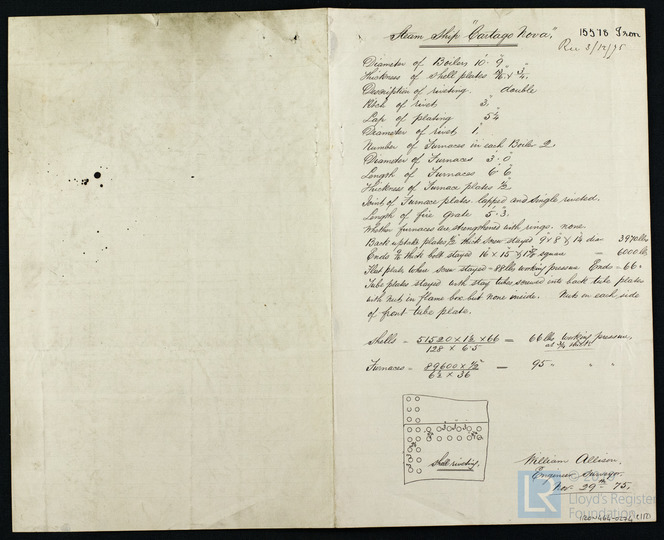 Steam Ship "Cartago Nova,"
15578 Iron
Rec 3/12/75
Diameter of Boilers 10' 9"
Thickness of Shell plates 13/16 & 3/4"
Description of riveting. double
Pitch of rivet 3"
Lap of plating 5 1/4
Diameter of rivet 1"
Number of Furnaces in each Boiler 2
Diameter of Furnaces 3' 0"
Length of Furnaces 6' 6"
Thickness of Furnace plates 1/2"
Joint of Furnace plates. lapped and single riveted.
Length of fire grate 5' 3"
Whether furnaces are strengthened with rings. none
Back uptake plates 1/2" thick screw stayed 9" x 8" 1 1/4 diar 3970 lbs
Ends 3/4 thick bolt stayed 16" x 15" square = 6000 lbs
Flat plate where screw stayed = 88 lbs working pressure Ends = 66 "
Tube plates stayed with stay tubes screwed into back tube plates
with nuts in flame box but none inside. Nuts on each side
of front tube plate.
Shells = 51520 x 1 1/2 x 66 / 128 x 6.5 = 66 lbs working pressure,
at 3/4 thick
Furnaces = 89600 x 1/2" / 6 1/2 x 36 = 95 " " "
Shell riveting.
William Allison,
Engineer Surveyor.
Nov. 29th 75.
© 2020
LR
Lloyd's Register
Foundation